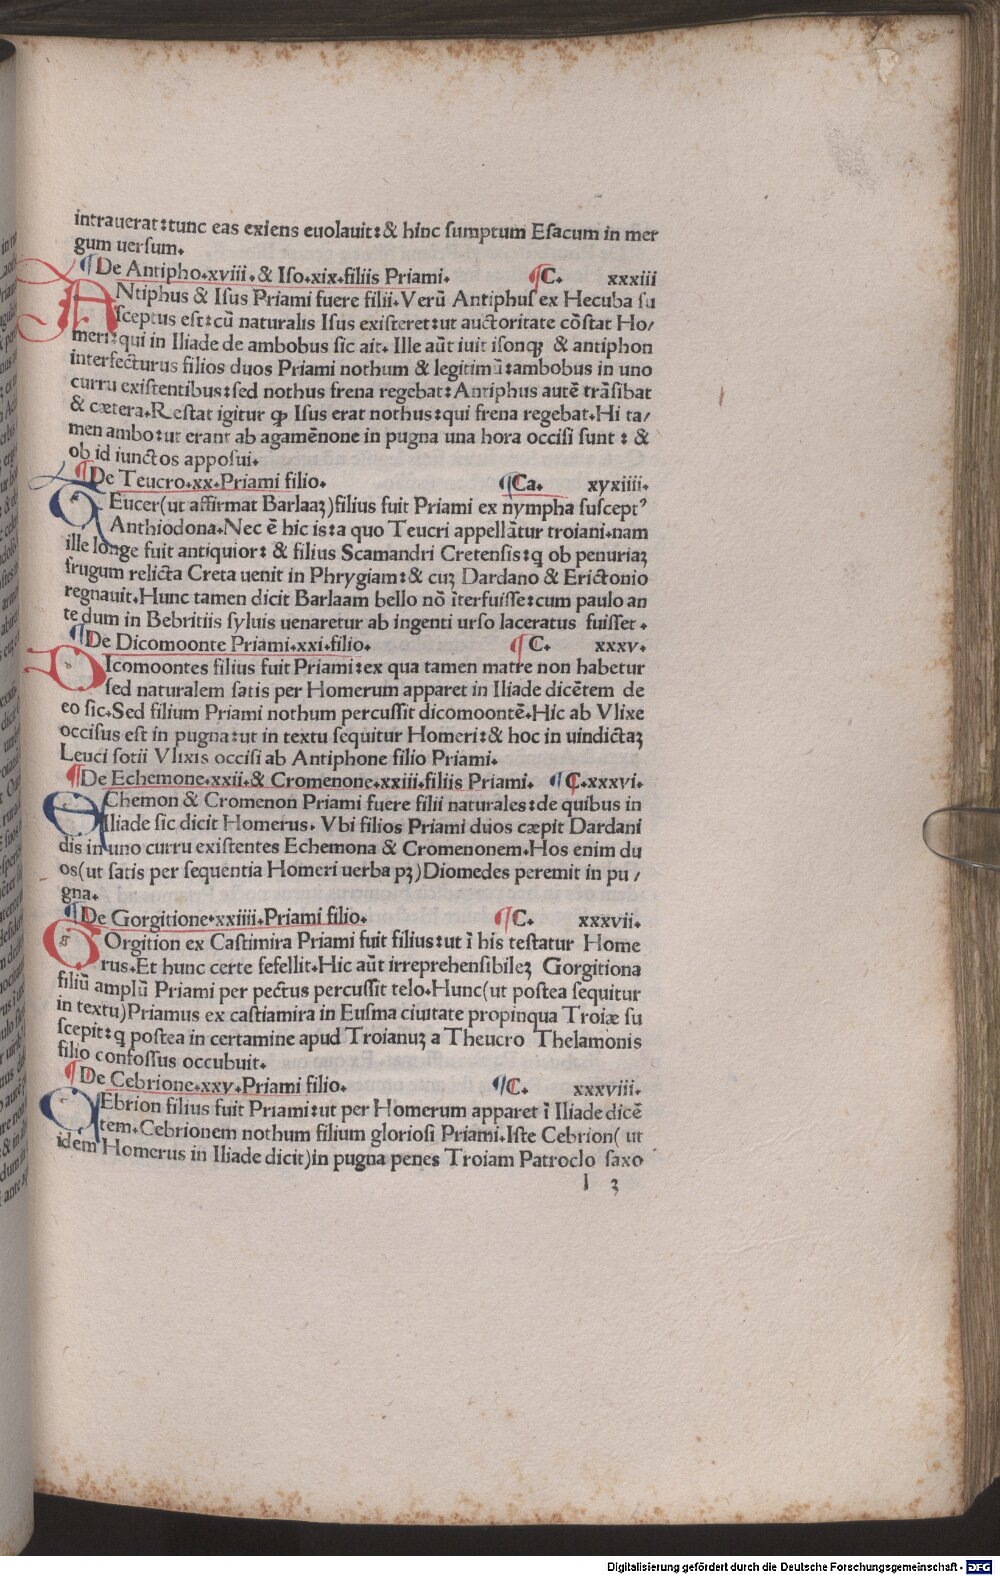 intrauerat:tunc eas exiens euolauit:& hinc ſumptum Eſacum in mer
gum uerſum.
¶De Antipho.xviii.& Iſo.xix.filiis Priami. ¶C. xxxiii
ANtiphus & Iſus Priami fuere filii.Verū Antiphuſ ex Hecuba ſu
ſceptus eſt:cū naturalis Iſus exiſteret:ut auctoritate cōſtat Ho/
meri:qui in Iliade de ambobus ſic ait. Ille aūt iuit iſonqꝫ & antiphon
interfecturus filios duos Priami nothum & legitimū:ambobus in uno
curru exiſtentibus:ſed nothus frena regebat:Antiphus autē trāſibat
& cætera.Reſtat igitur ꝙ Iſus erat nothus:qui frena regebat.Hi ta/
men ambo:ut erant ab agamēnone in pugna una hora occiſi ſunt : &
ob id iunctos appoſui.
¶De Teucro.xx.Priami filio. ¶Ca. xyxiiii.
TEucer(ut affirmat Barlaaꝫ)filius fuit Priami ex nympha ſuſceptꝰ
Anthiodona.Nec ē hic is:a quo Teucri appellātur troiani.nam
ille longe fuit antiquior: & filius Scamandri Cretenſis:q ob penuriaꝫ
frugum relicta Creta uenit in Phrygiam:& cuꝫ Dardano & Erictonio
regnauit.Hunc tamen dicit Barlaam bello nō īterfuiſſe:cum paulo an
te dum in Bebritiis ſyluis uenaretur ab ingenti urſo laceratus fuiſſet.
¶De Dicomoonte Priami.xxi.filio. ¶C. xxxv.
DIcomoontes filius fuit Priami:ex qua tamen matre non habetur
ſed naturalem ſatis per Homerum apparet in Iliade dicētem de
eo ſic.Sed filium Priami nothum percuſſit dicomoontē.Hic ab Vlixe
occiſus eſt in pugna:ut in textu ſequitur Homeri:& hoc in uindictaꝫ
Leuci ſotii Vlixis occiſi ab Antiphone filio Priami.
¶De Echemone.xxii.& Cromenone.xxiii.filiis Priami. ¶C.xxxvi.
EChemon & Cromenon Priami fuere filii naturales:de quibus in
Iliade ſic dicit Homerus. Vbi filios Priami duos cæpit Dardani
dis in uno curru exiſtentes Echemona & Cromenonem.Hos enim du
os(ut ſatis per ſequentia Homeri uerba pꝫ)Diomedes peremit in pu /
gna.
¶De Gorgitione.xxiiii.Priami filio. ¶C. xxxvii.
GOrgition ex Caſtimira Priami fuit filius:ut ī his teſtatur Home
rus.Et hunc certe fefellit.Hic aūt irreprehenſibileꝫ Gorgitiona
filiū amplū Priami per pectus percuſſit telo.Hunc(ut poſtea ſequitur
in textu)Priamus ex caſtiamira in Euſma ciuitate propinqua Troiæ ſu
ſcepit:q poſtea in certamine apud Troianuꝫ a Theucro Thelamonis
filio confoſſus occubuit.
¶De Cebrione.xxv.Priami filio. ¶C. xxxviii.
CEbrion filius fuit Priami:ut per Homerum apparet ī Iliade dicē
tem.Cebrionem nothum filium glorioſi Priami.Iſte Cebrion( ut
idem Homerus in Iliade dicit)in pugna penes Troiam Patroclo ſaxo
l 3
Digitalisierung gefördert durch die Deutsche Forschungsgemeinschaft - DFG